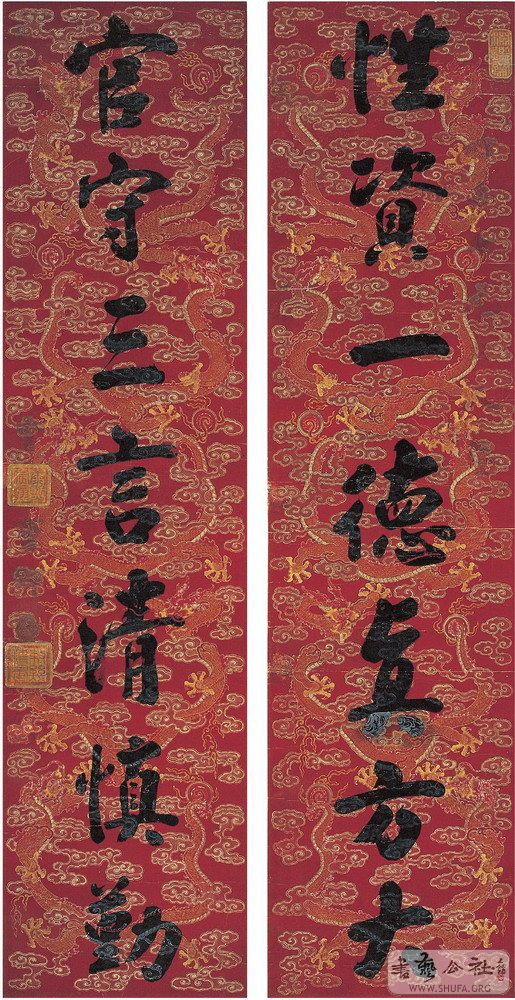 性資一德直方大
官守三言清慎勤
書藝公社
WWW.SHUFA.ORG